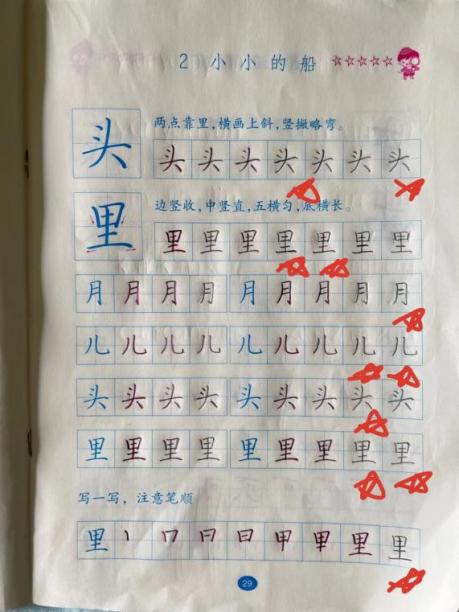 2 小小的船
头 两点靠里，横画上斜，竖撇略弯。
头头头头头头头
里 边竖收，中竖直，五横匀，底横长。
里里里里里里里
月月月月月月月月月
儿儿儿儿儿儿儿儿儿
头头头头头头头头头
里里里里里里里里里
写一写，注意笔顺
里丨口曰曰甲里里
29